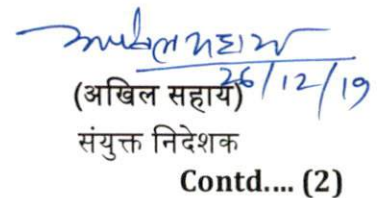 अखिल सहाय
26/12/19
(अखिल सहाय)
संयुक्त निदेशक
Contd.... (2)